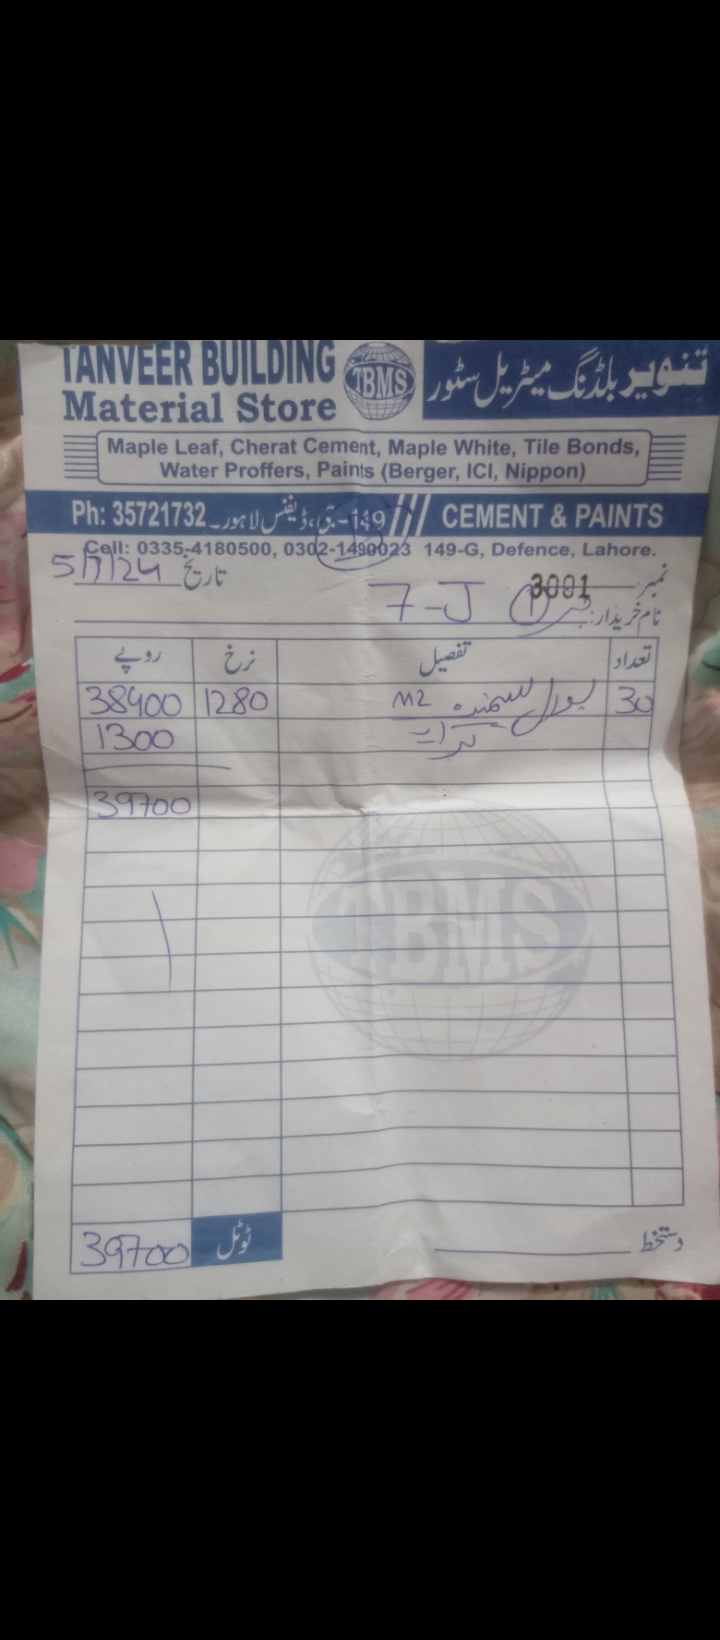 TANVEER BUILDING
Material Store
TBMS
تنویر بلڈنگ میٹریل سٹور
Maple Leaf, Cherat Cement, Maple White, Tile Bonds,
Water Proffers, Paints (Berger, ICI, Nippon)
Ph: 35721732 149-جی، ڈیفنس لاہور۔ CEMENT & PAINTS
Cell: 0335-4180500, 0302-1490023 149-G, Defence, Lahore.
نمبر 3001 تاریخ 5/7/24
نام خریدار: 7-J
تعداد تفصیل نرخ روپے
30 M2 1280 38400
کرایہ 1300
39700
TBMS
ٹوٹل 39700
دستخط